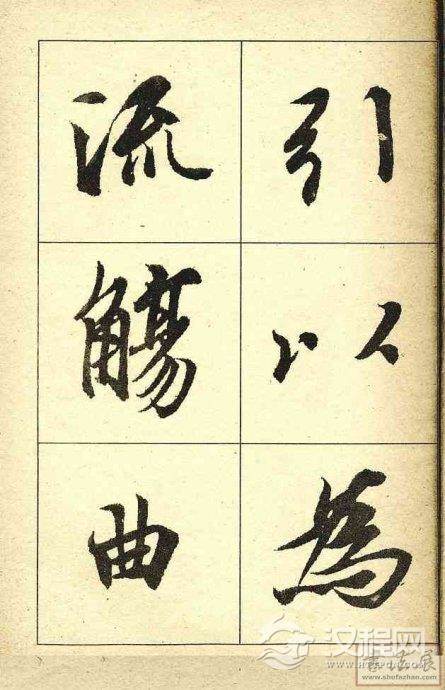 引以為
流觴曲
汉程网
www.shufazhan.com